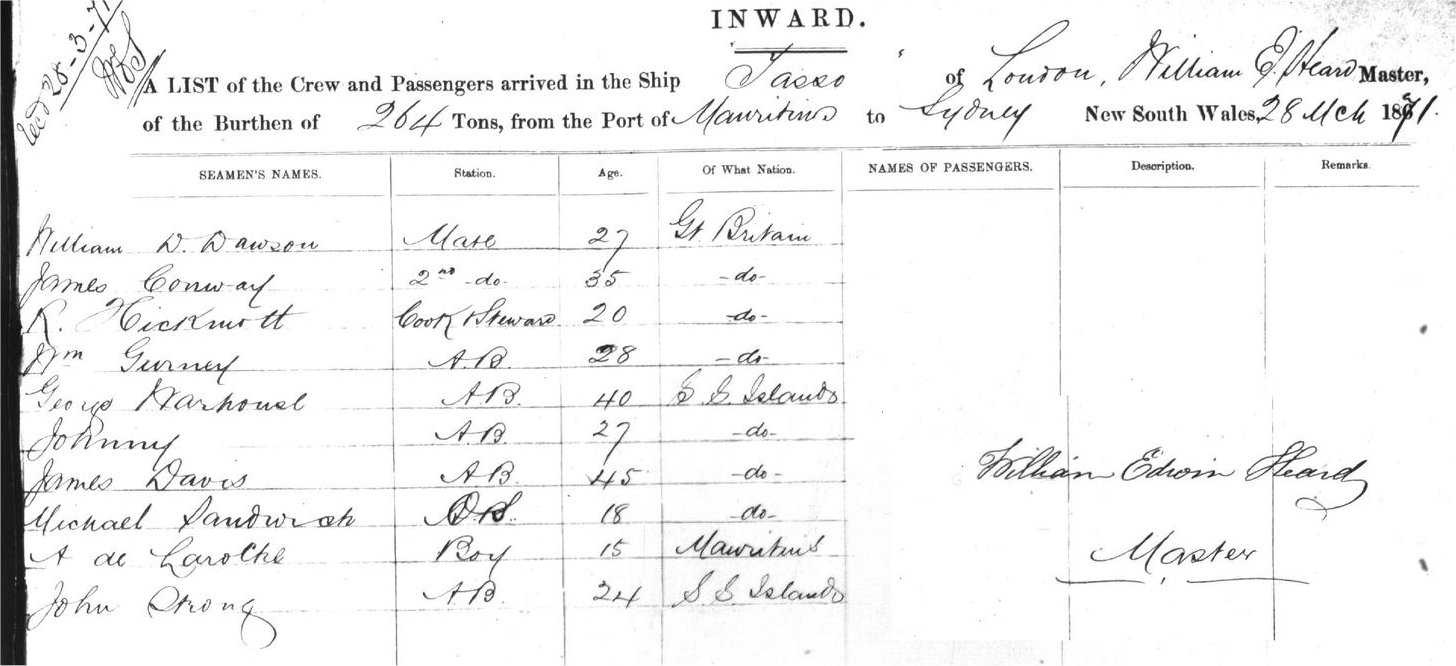 INWARD.
Recd 28-3-71
A LIST of the Crew and Passengers arrived in the Ship Tasso of London, William E. Heard Master,
of the Burthen of 264 Tons, from the Port of Mauritius to Sydney New South Wales, 28 Mch 1871.
SEAMEN'S NAMES. Station. Age. Of What Nation. NAMES OF PASSENGERS. Description. Remarks.
William D. Dawson Mate 27 Gt. Britain
James Conway 2nd -do- 35 -do-
R. Hickmott Cook & Steward 20 -do-
Wm Gurney A.B. 28 -do-
George Warhouse A.B. 40 S. S. Islands
Johnny A.B. 27 -do-
James Davis A.B. 45 -do-
William Edwin Heard
Michael Sandwich O.S. 18 -do-
A de Laroche Boy 15 Mauritius
Master
John Strong A.B. 24 S. S. Islands